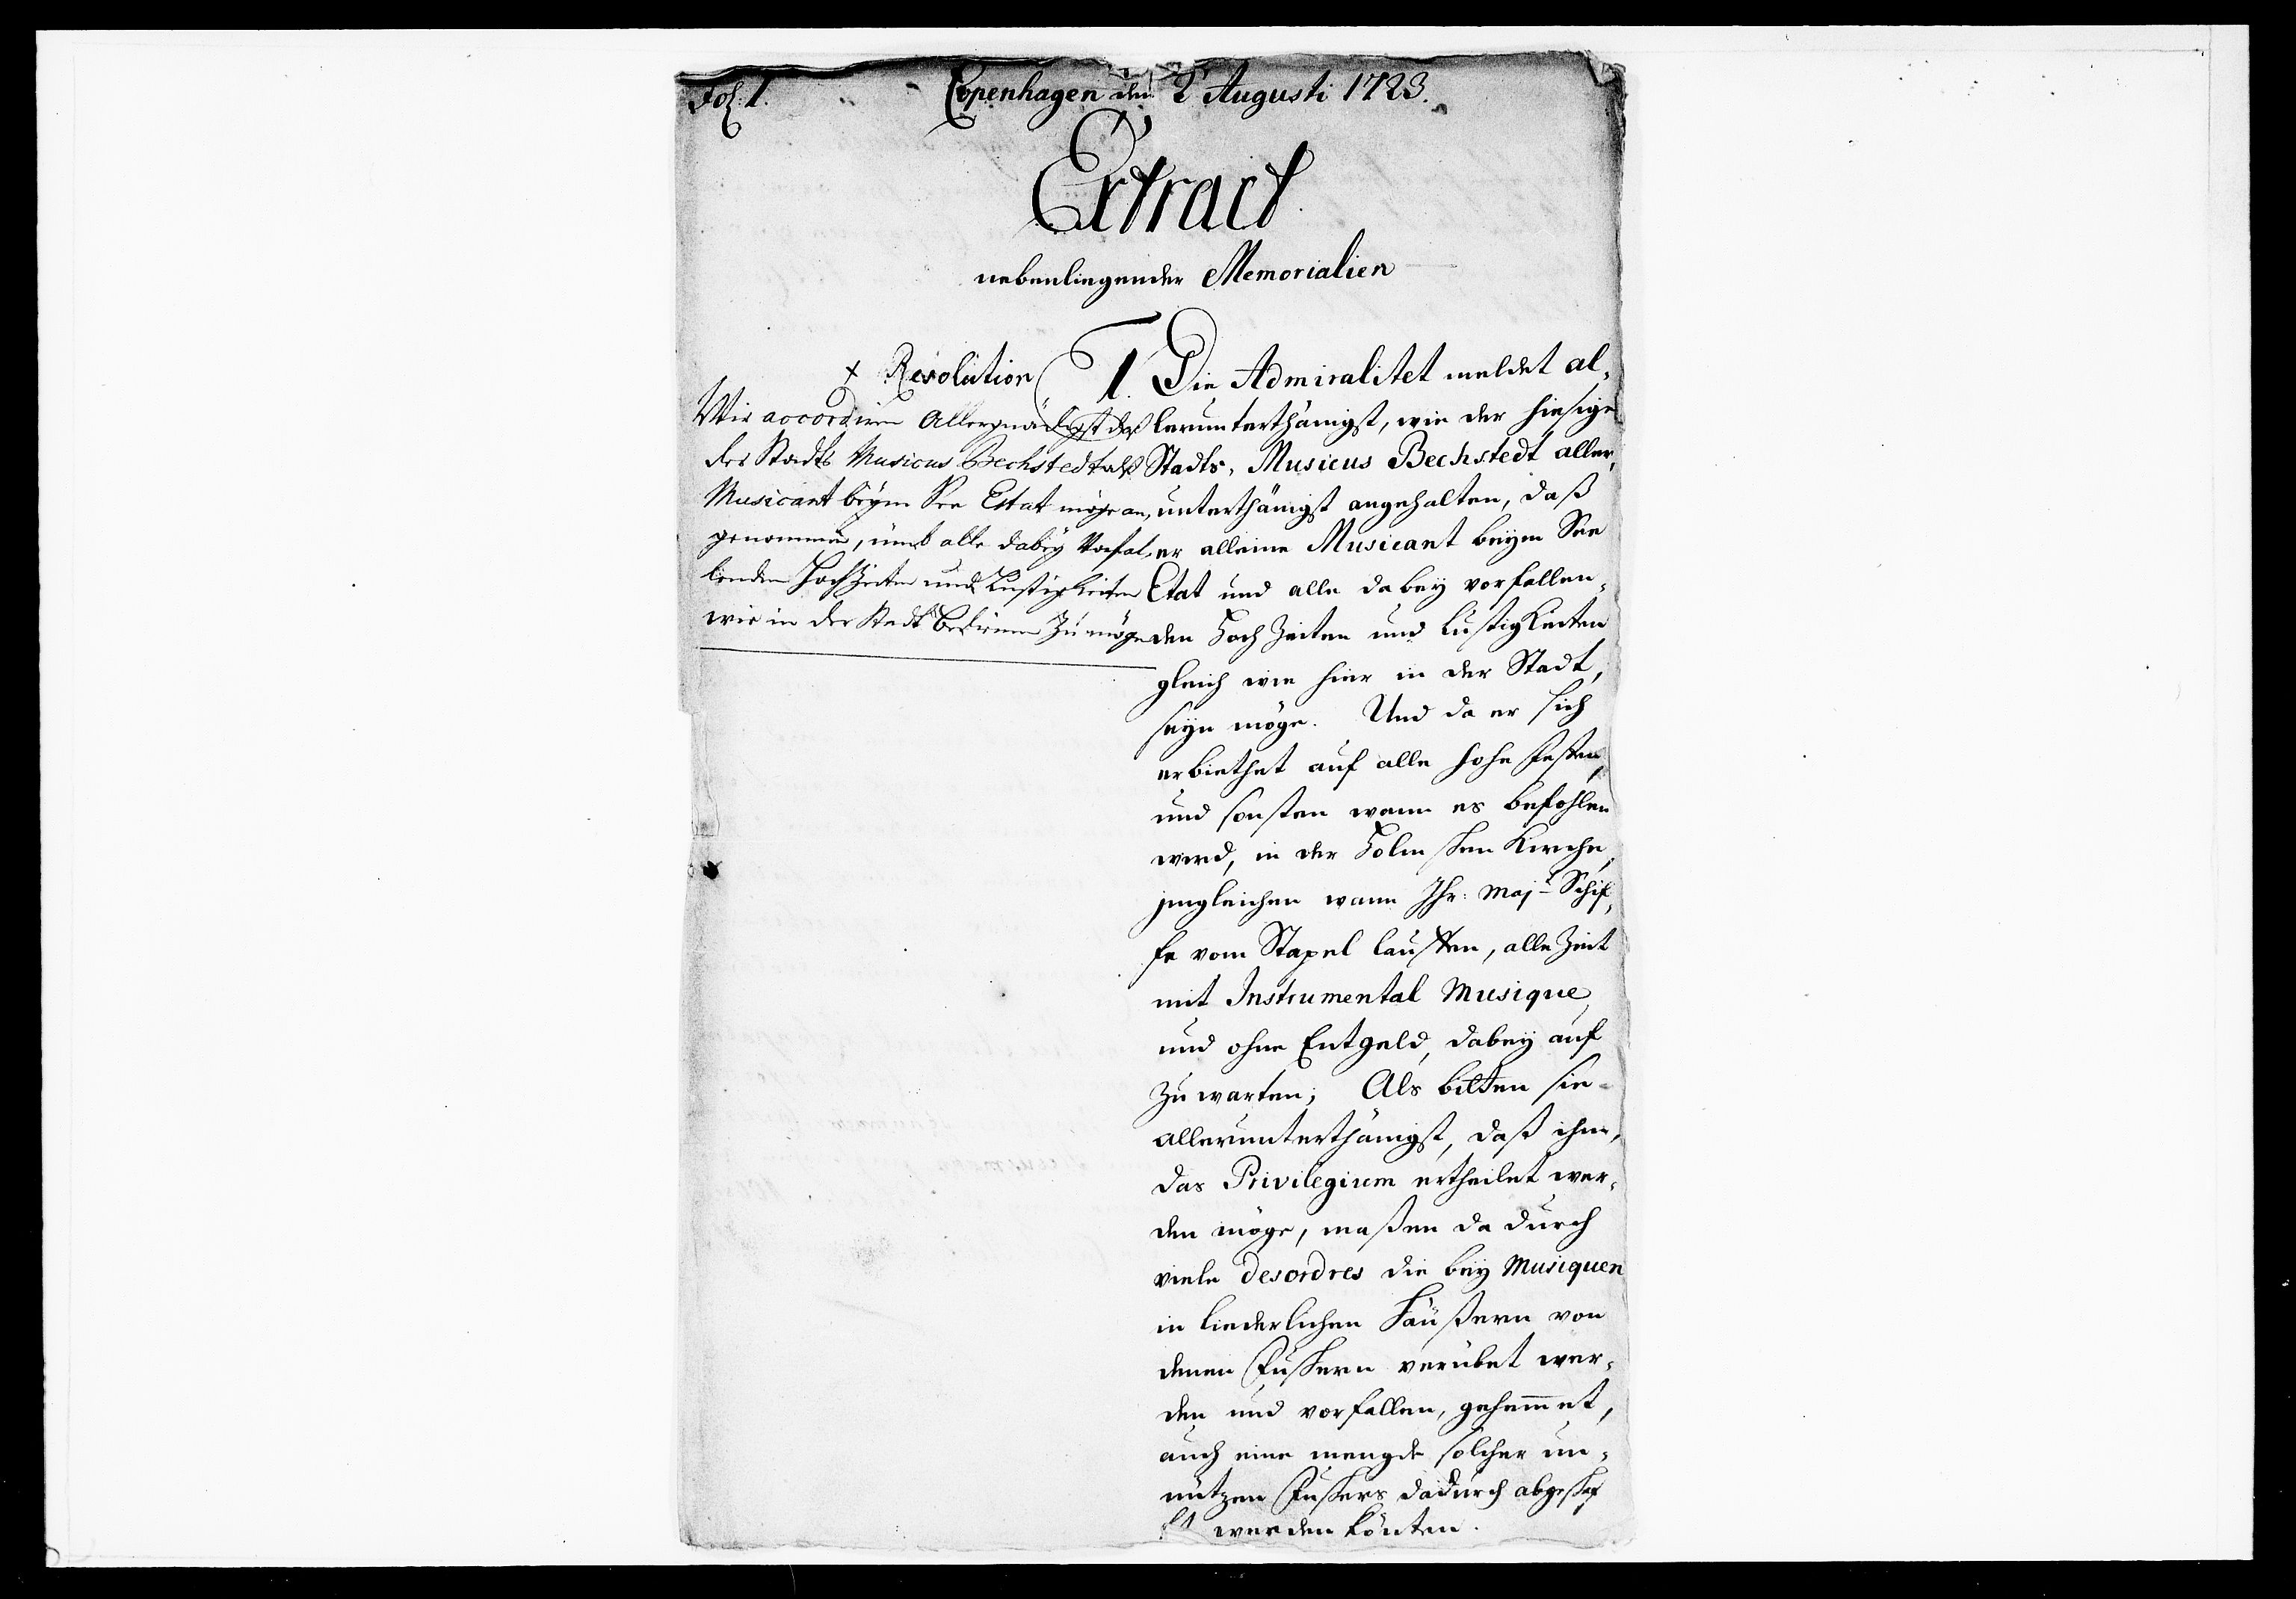 Fol: 1.
Copenhagen den 2 Augusti 1723.
Extract
nebenliegender Memorialien
+ Resolution
Wir accordiren Allergnädigst daß
der Stadts Musicus Bechstedt als
Musicant beym See Etat möge an,
genommen, umb alle dabey Vorfal,
lenden Hochzeiten und Lustigkeiten
wie in der Stadt bedienen zu möge
1. Die Admiralitet meldet al,
lerunterthänigst, wie der hiesige
Stadts, Musicus Bechstedt aller,
unterthänigst angehalten, daß
er alleine Musicant beym See
Etat und alle dabey vorfallen,
den HochZeiten und Lustigkeiten
gleich wie hier in der Stadt,
seyn möge. Und da er sich
erbiethet auf alle hohe Festen,
und sonsten wann es befohlen
werd, in der Holmßen Kirche,
imgleichen wann Ihr: Majt Schif,
fe vom Stapel lauffen, alle Zeit
mit Instrumental Musique,
und ohne Entgeld, dabey auf
zu warten; Als bitten sie
allerunterthänigst, daß ihm,
das Privilegium ertheilet wer,
den möge, maßen da durch
viele desordres die bey Musiquen
in liederlichen Häußern von
denen Fuskern verübet wer,
den und vorfallen, gehem̅et,
auch eine mengde solcher un,
nützen Fuskers dadurch abgeschaf
ft werden könten.